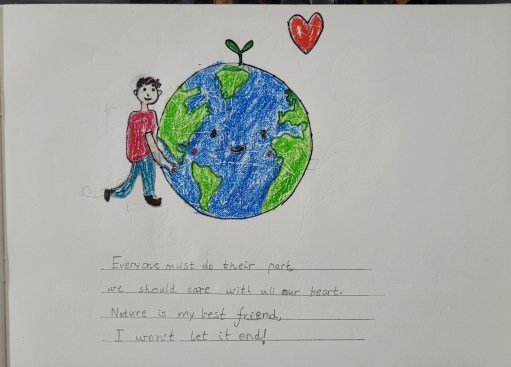 Everyone must do their part
we should care with all our heart.
Nature is my best friend,
I won't let it end!